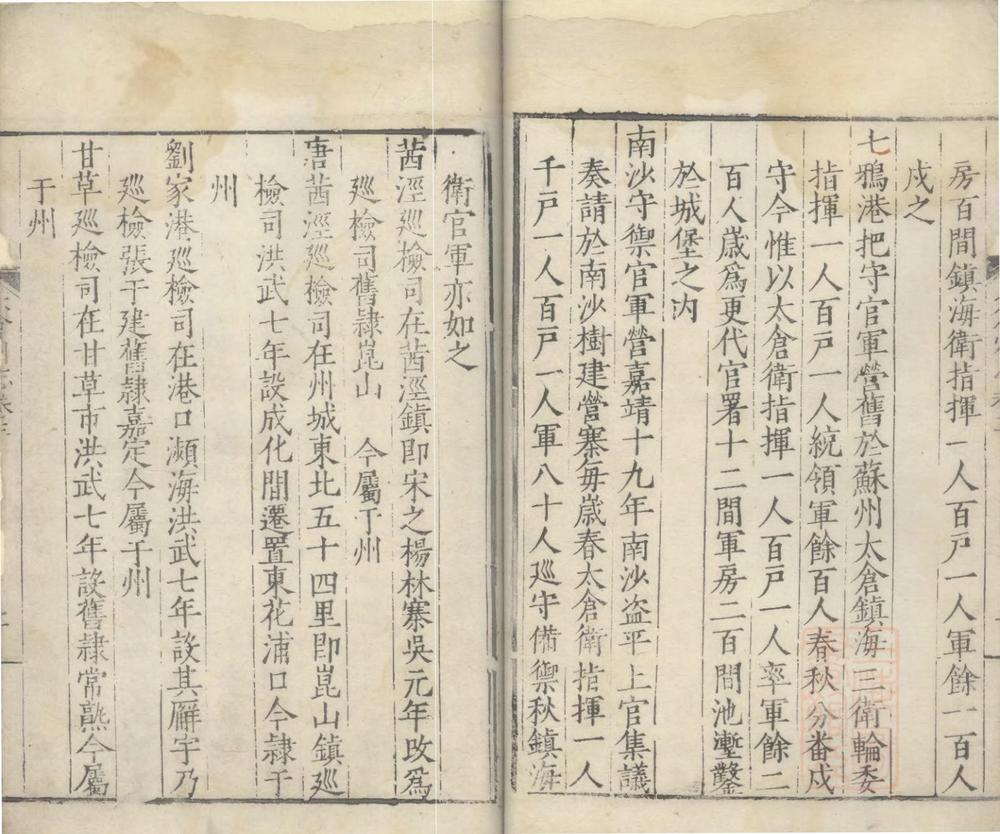 房百間鎮海衛指揮一人百戸一人軍餘一百人
戍之
七鴉港把守官軍營舊於蘇州太倉鎮海三衛輪委
指揮一人百戸一人統領軍餘百人春秋分番戍
守今惟以太倉衛指揮一人百戸一人率軍餘二
百人嵗爲更代官署十二間軍房二百間池塹鑿
於城堡之内
南沙守禦官軍營嘉靖十九年南沙盗平上官集議
奏請於南沙樹建營寨每嵗春太倉衛指揮一人
千戸一人百戸一人軍八十人廵守備禦秋鎮海
衛官軍亦如之
茜涇廵檢司在茜涇鎮即宋之楊林寨吳元年改爲
廵檢司舊隷崑山　今屬于州
唐茜涇廵檢司在州城東北五十四里即崑山鎮廵
檢司洪武七年設成化間遷置東花浦口今隷于
州
劉家港廵檢司在港口瀕海洪武七年設其廨宇乃
廵檢張于建舊隷嘉定今屬于州
甘草廵檢司在甘草市洪武七年設舊隷常熟今屬
于州